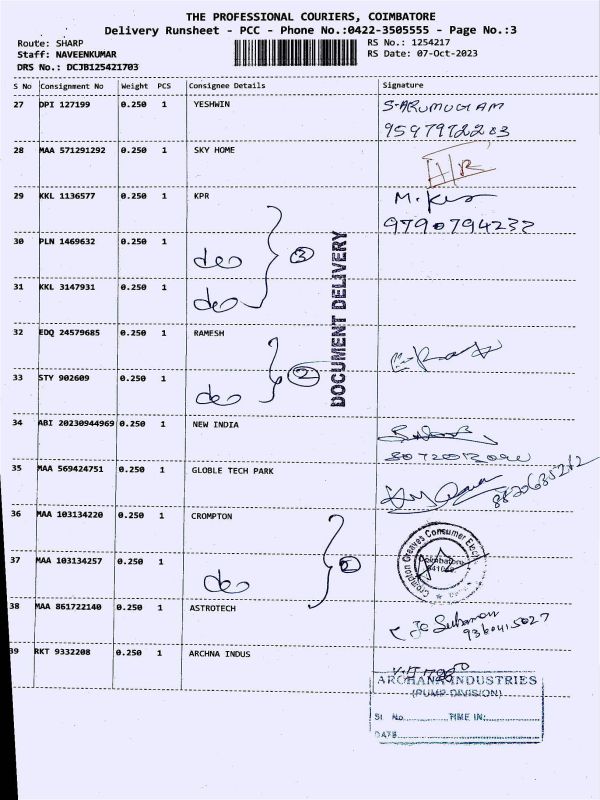 THE PROFESSIONAL COURIERS, COIMBATORE
Delivery Runsheet - PCC - Phone No.:0422-3505555 - Page No.:3
Route: SHARP RS No.: 1254217
Staff: NAVEENKUMAR RS Date: 07-Oct-2023
DRS No.: DCJB125421703
S No Consignment No Weight PCS Consignee Details Signature
27 DPI 127199 0.250 1 YESHWIN S-ARUMUGAM
28 MAA 571291292 0.250 1 SKY HOME
29 KKL 1136577 0.250 1 KPR
9790794232
30 PLN 1469632 0.250 1 do 3
31 KKL 3147931 0.250 1 do
DOCUMENT DELIVERY
32 EDQ 24579685 0.250 1 RAMESH
33 STY 902609 0.250 1 do 2
34 ABI 20230944969 0.250 1 NEW INDIA
35 MAA 569424751 0.250 1 GLOBLE TECH PARK
36 MAA 103134220 0.250 1 CROMPTON
Crompton Greaves Consumer
Coimbatore
37 MAA 103134257 0.250 1 do
38 MAA 861722140 0.250 1 ASTROTECH
9360415027
39 RKT 9332208 0.250 1 ARCHNA INDUS
ARCHANA INDUSTRIES
(PUMP DIVISION)
Sl No. TIME IN:
DATE